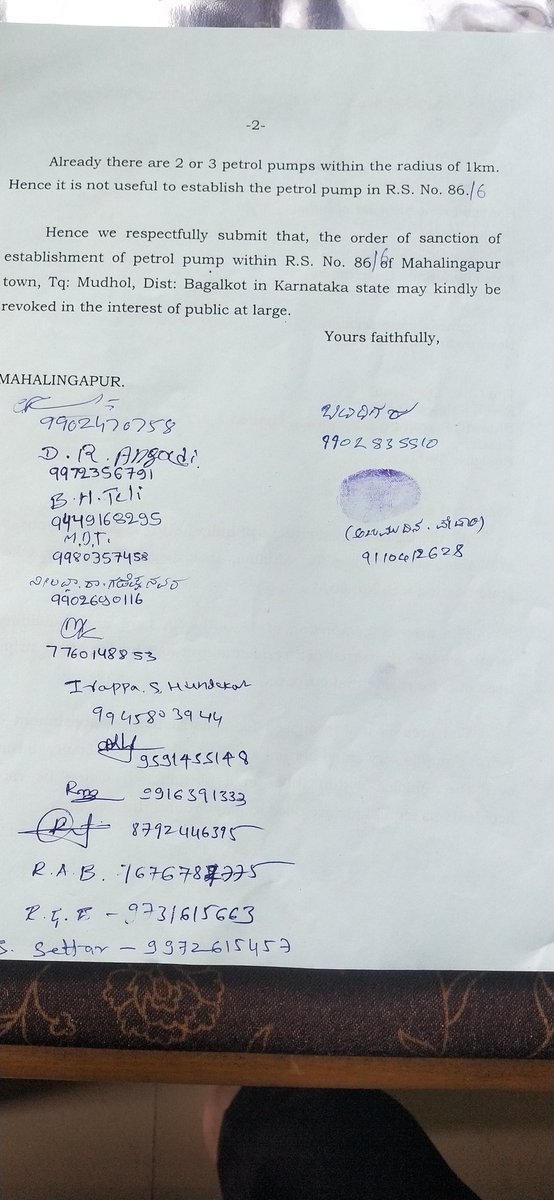 -2-
Already there are 2 or 3 petrol pumps within the radius of 1km.
Hence it is not useful to establish the petrol pump in R.S. No. 86./6
Hence we respectfully submit that, the order of sanction of
establishment of petrol pump within R.S. No. 86/6 of Mahalingapur
town, Tq: Mudhol, Dist: Bagalkot in Karnataka state may kindly be
revoked in the interest of public at large.
Yours faithfully,
MAHALINGAPUR.
9902470758
D. R. Angadi
9972356791
B. H. Teli
9449168295
M.D.T.
9980357458
9902690116
7760148853
Irappa. S. Hundekar
9945803944
9591455148
9916391333
8792446395
R.A.B.
- 9731615663
S. Settar - 9972615457
9902835510
9110412628